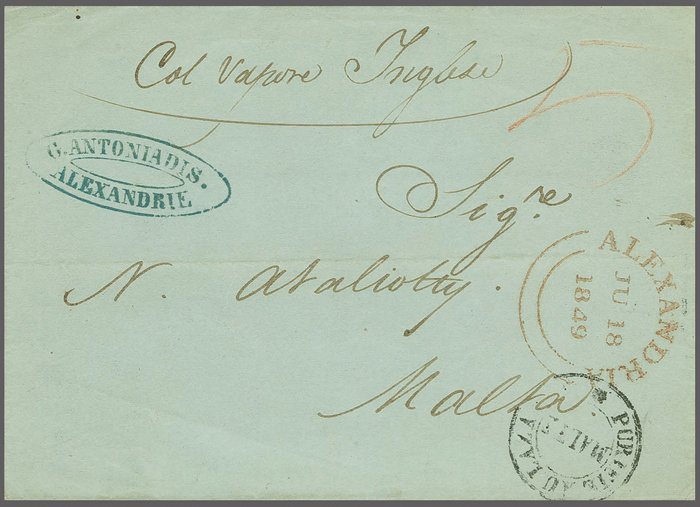 Col Vapore Inglese
5
G. ANTONIADIS.
ALEXANDRIE
Sig.re
N. Ataliotty.
Malta
ALEXANDRIA
JU 18
1849
PURIFIÉ AU LAZA
MALTE